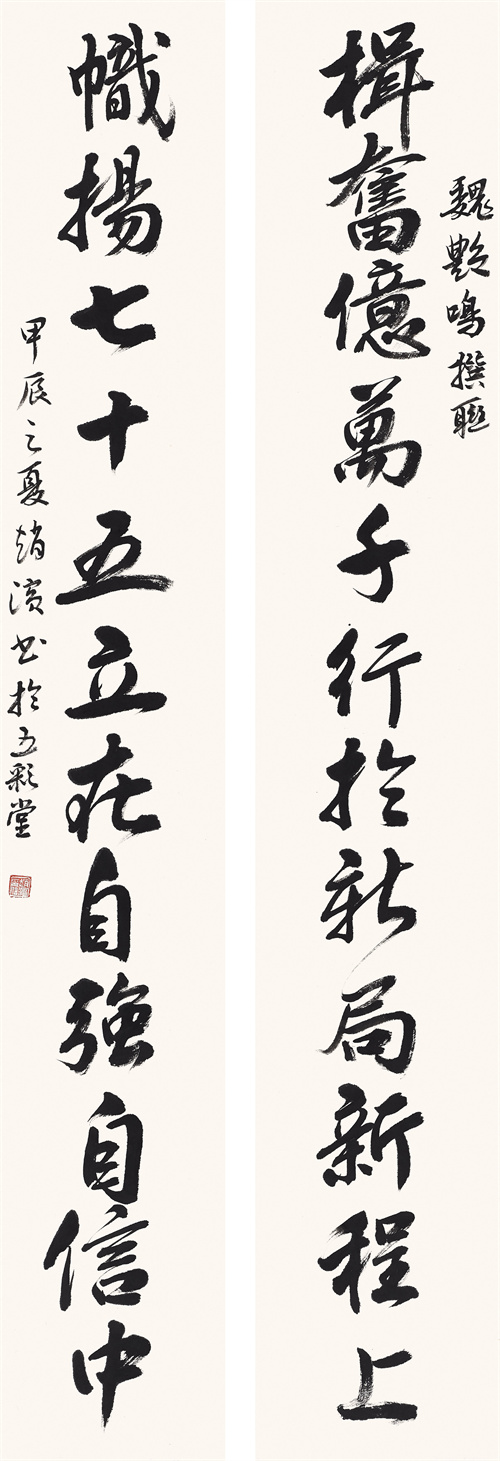 魏艷鳴撰聯
楫奮億萬千行於新局新程上
幟揚七十五立在自強自信中
甲辰之夏趙濱书於五彩堂